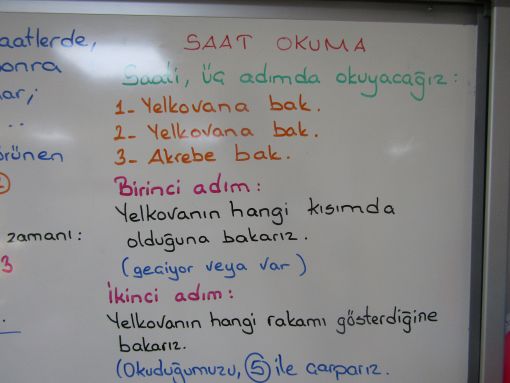 SAAT OKUMA
Saati, üç adımda okuyacağız:
1- Yelkovana bak.
2- Yelkovana bak.
3- Akrebe bak.
Birinci adım:
Yelkovanın hangi kısımda
olduğuna bakarız.
(geçiyor veya var)
İkinci adım:
Yelkovanın hangi rakamı gösterdiğine
bakarız.
(Okuduğumuzu, 5 ile çarparız.
aatlerde,
onra
ar,
..
örünen
zamanı:
3